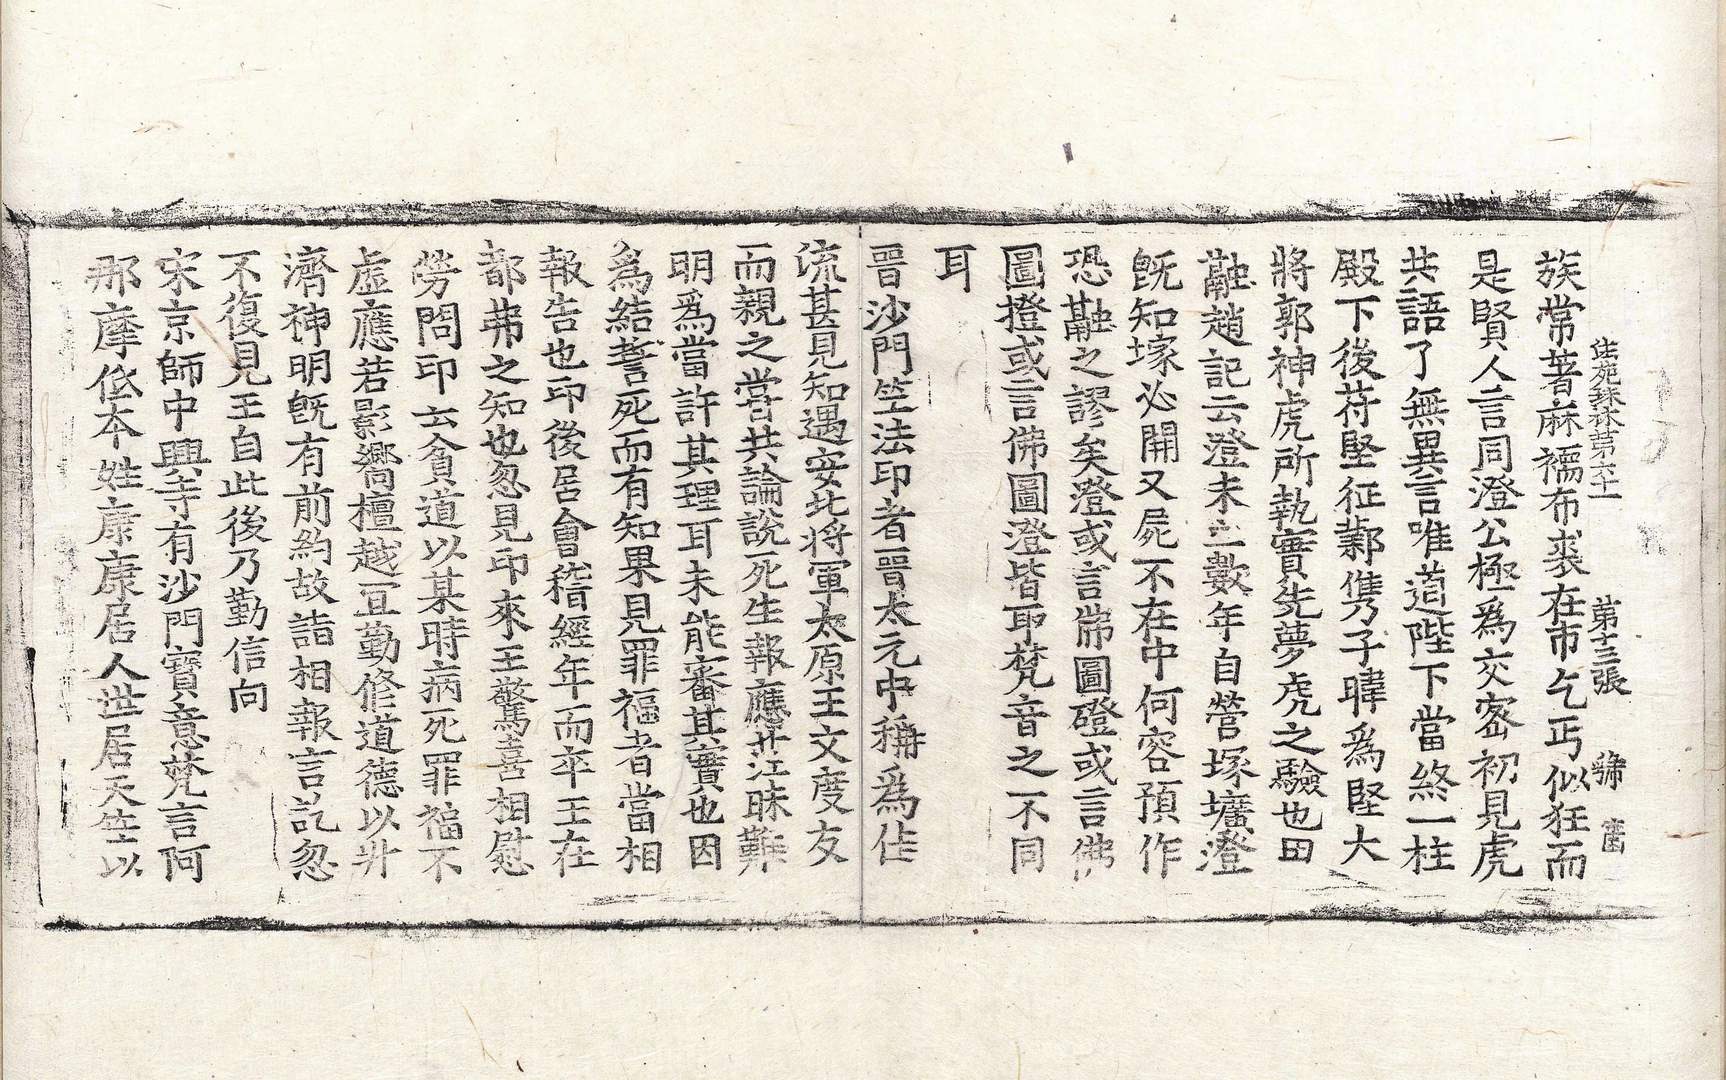 法苑珠林第六十一 第十三張 号虎
族常著麻襦布裘在市乞丐似狂而
是賢人言同澄公極爲交密初見虎
共語了無異言唯道陛下當終一柱
殿下後苻堅征鄴儁子暐爲堅大
將郭神虎所執實先夢虎之驗也田
融趙記云澄未亡數年自營塚壙澄
旣知塚必開又屍不在中何容預作
恐融之謬矣澄或言佛圖磴或言佛
圖橙或言佛圖澄皆耶梵音之不同
耳
晉沙門竺法印者晉太元中稱爲住
流甚見知遇安北將軍太原王文度友
而親之嘗共論說死生報應茫昧難
明爲當許其理耳未能審其實也因
爲結誓死而有知果見罪福者當相
報告也印後居會稽經年而卒王在
都弗之知也忽見印來王驚喜相慰
勞問印云貧道以某時病死罪福不
虛應若影嚮檀越宜勤修道德以升
濟神明旣有前約故詣相報言訖忽
不復見王自此後乃勤信向
宋京師中興寺有沙門寶意梵言阿
那摩低本姓康康居人世居天竺以